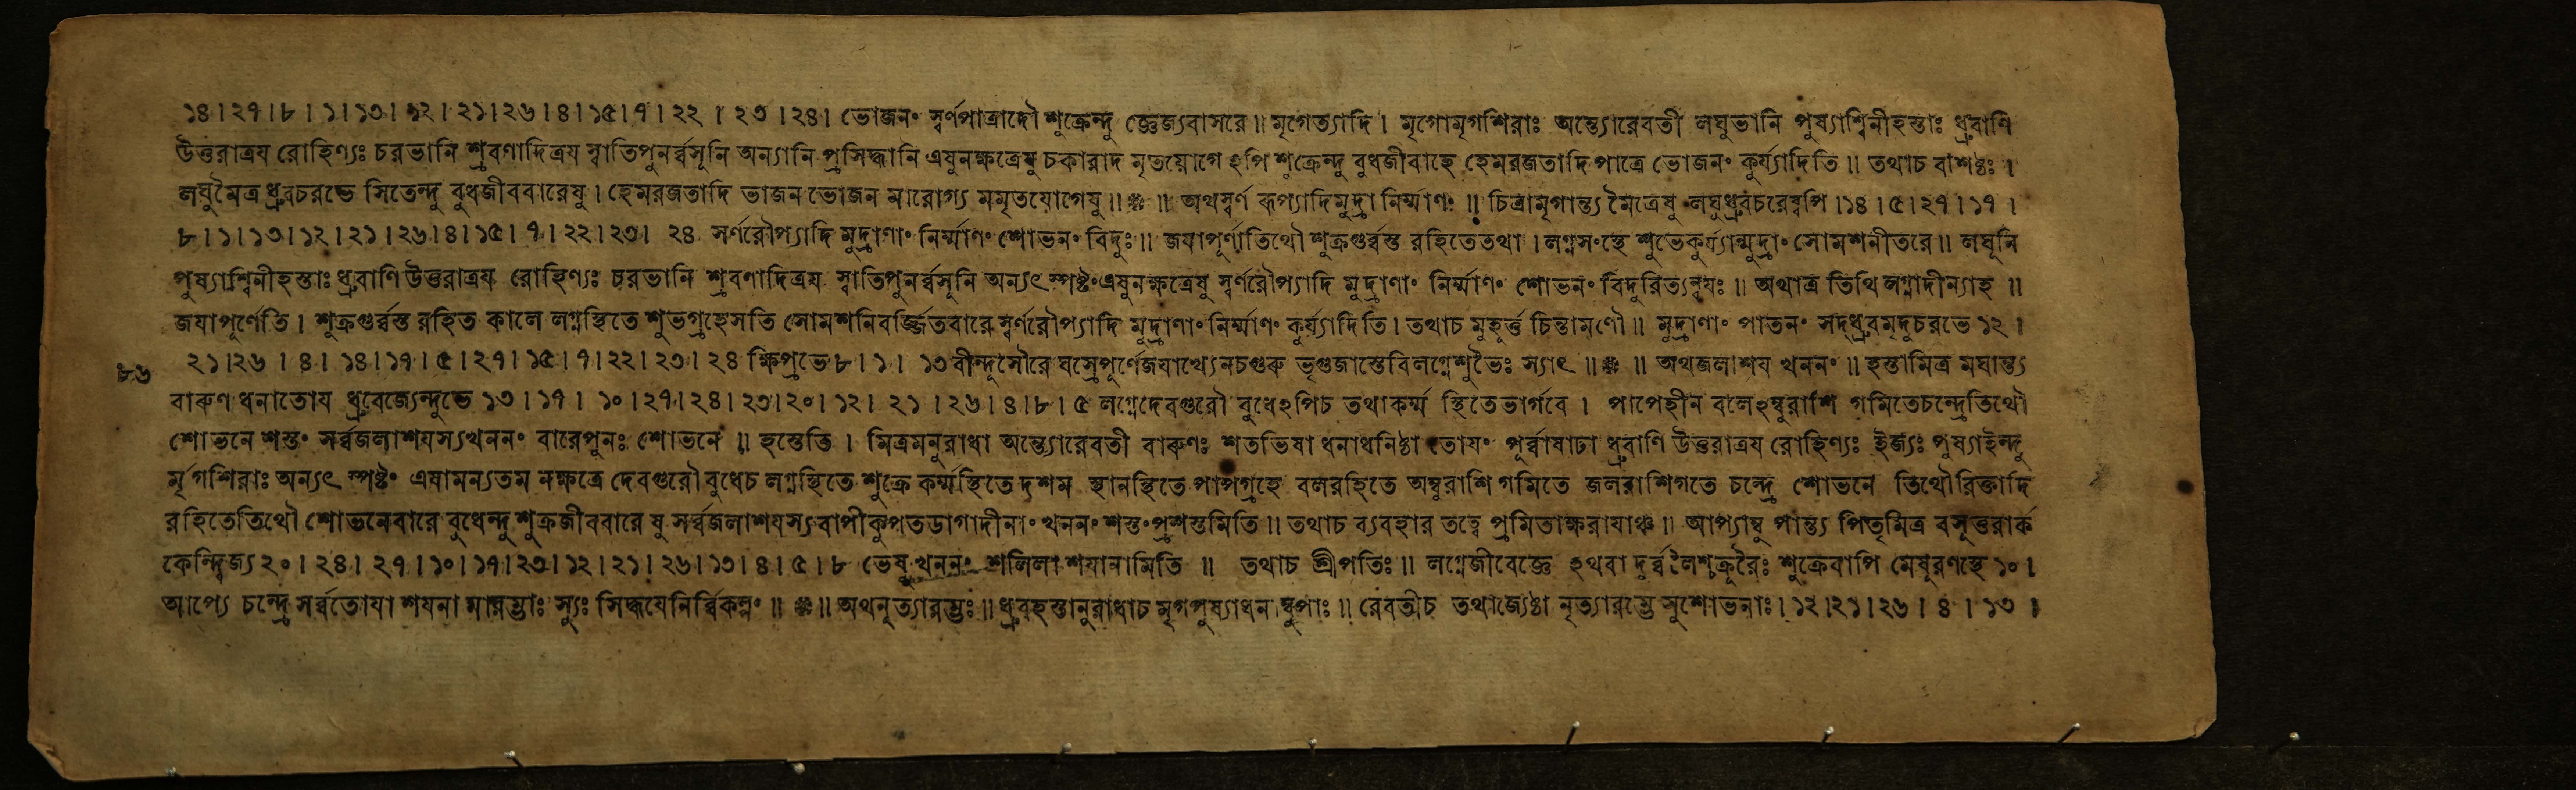 ১৪।২৭।৮।১।১৩।১২।২১।২৬।৪।১৫।৭।২২।২৩।২৪। ভোজনং স্বর্ণপাত্রাদৌ শুক্রেন্দু জ্ঞেজ্যবাসরে॥ মৃগেত্যাদি। মৃগোমৃগশিরাঃ অন্ত্যোরেবতী লঘুভানি পুষ্যাশ্বিনীহস্তাঃ ধ্রুবাণি
উত্তরাত্রয রোহিণ্যঃ চরভানি শ্রবণাদিত্রয স্বাতিপুনর্ব্বসূনি অন্যানি প্রসিদ্ধানি এষুনক্ষত্রেষু চকারাদ মৃতযোগে ঽপি শুক্রেন্দু বুধজীবাহে হেমরজতাদি পাত্রে ভোজনং কুর্য্যাদিতি॥ তথাচ বশিষ্ঠঃ।
লঘুমৈত্র ধ্রুবচরভে সিতেন্দু বুধজীববারেষু। হেমরজতাদি ভাজন ভোজন মারোগ্য মমৃতযোগেষু॥ ॥ অথস্বর্ণ রূপ্যাদিমুদ্রা নির্ম্মাণং॥ চিত্রামৃগান্ত্য মৈত্রেষু লঘুধ্রুবচরেষ্বপি।১৪।৫।২৭।১৭।
৮।১।১৩।১২।২১।২৬।৪।১৫।৭।২২।২৩। ২৪ সর্ণরৌপ্যাদি মুদ্রাণাং নির্ম্মাণং শোভনং বিদুঃ॥ জযাপূর্ণাতিথৌ শুক্রগুর্ব্বস্ত রহিতেতথা। লগ্নসংস্থে শুভেকুর্য্যান্মুদ্রাং সোমশনীতরে॥ লঘূনি
পুষ্যাশ্বিনীহস্তাঃ ধ্রুবাণি উত্তরাত্রয রোহিণ্যঃ চরভানি শ্রবণাদিত্রয স্বাতিপুনর্ব্বসূনি অন্যৎ স্পষ্টং এষুনক্ষত্রেষু স্বর্ণরৌপ্যাদি মুদ্রাণাং নির্ম্মাণং শোভনং বিদুরিত্যন্বযঃ॥ অথাত্র তিথি লগ্নাদীন্যাহ॥
জযাপূর্ণেতি। শুক্রগুর্ব্বস্ত রহিত কালে লগ্নস্থিতে শুভগ্রহেসতি সোমশনিবর্জ্জিতবারে স্বর্ণরৌপ্যাদি মুদ্রাণাং নির্ম্মাণং কুর্য্যাদিতি। তথাচ মুহূর্ত্ত চিন্তামণৌ॥ মুদ্রাণাং পাতনং সদ্ধ্রুবমৃদুচরভে ১২।
২১।২৬।৪।১৪।১৭।৫।২৭।১৫।৭।২২।২৩।২৪ ক্ষিপ্রভে ৮।১। ১৩ বীন্দুসৌরে ঘস্রেপূর্ণেজযাখ্যেনচগুরু ভৃগুজাস্তেবিলগ্নেশুভৈঃ স্যাৎ॥ ॥ অথজলাশয খননং॥ হস্তামিত্র মঘান্ত্য
৮৬
বারুণ ধনাতোয ধ্রুবেজ্যেন্দুভে ১৩।১৭। ১০।২৭।২৪।২৩।২০।১২। ২১।২৬।৪।৮।৫ লগ্নেদেবগুরৌ বুধেঽপিচ তথাকর্ম্ম স্থিতেভার্গবে। পাপেহীন বলেঽম্বুরাশি গমিতেচন্দ্রেতিথৌ
শোভনে শস্তং সর্ব্বজলাশযস্যখননং বারেপুনঃ শোভনে॥ হস্তেতি। মিত্রমনুরাধা অন্ত্যোরেবতী বারুণঃ শতভিষা ধনাধনিষ্ঠা তোযং পূর্ব্বাষাঢা ধ্রুবাণি উত্তরাত্রয রোহিণ্যঃ ইজ্যঃ পুষ্যাইন্দু
র্মৃগশিরাঃ অন্যৎ স্পষ্টং এষামন্যতম নক্ষত্রে দেবগুরৌ বুধেচ লগ্নস্থিতে শুক্রে কর্ম্মস্থিতে দশম স্থানস্থিতে পাপগ্রহে বলরহিতে অম্বুরাশি গমিতে জলরাশিগতে চন্দ্রে শোভনে তিথৌরিক্তাদি
রহিতেতিথৌ শোভনেবারে বুধেন্দু শুক্রজীববারে ষু সর্ব্বজলাশযস্য বাপীকুপতডাগাদীনাং খননং শস্তং প্রশস্তমিতি॥ তথাচ ব্যবহার তত্বে প্রমিতাক্ষরাযাঞ্চ॥ আপ্যাম্বু পান্ত্য পিতৃমিত্র বসূত্তরার্ক
কেন্দ্বিজ্য ২০।২৪।২৭।১০।১৭।২৩।১২।২১।২৬।১৩।৪।৫।৮ ভেষু খননং শলিলা শযানামিতি॥ তথাচ শ্রীপতিঃ॥ লগ্নেজীবেজ্ঞে ঽথবা দুর্ব্বলৈশ্চক্রূরৈঃ শুক্রেবাপি মেষুরণস্থে ১০।
আপ্যে চন্দ্রে সর্ব্বতোযা শযনা মারম্ভাঃ স্যুঃ সিদ্ধযেনির্ব্বিকল্পং॥ ॥ অথনৃত্যারম্ভঃ॥ ধ্রুবহস্তানুরাধাচ মৃগপুষ্যাধন ম্বুপাঃ॥ রেবতীচ তথাজ্যেষ্ঠা নৃত্যারম্ভে সুশোভনাঃ।১২।২১।২৬।৪।১৩।